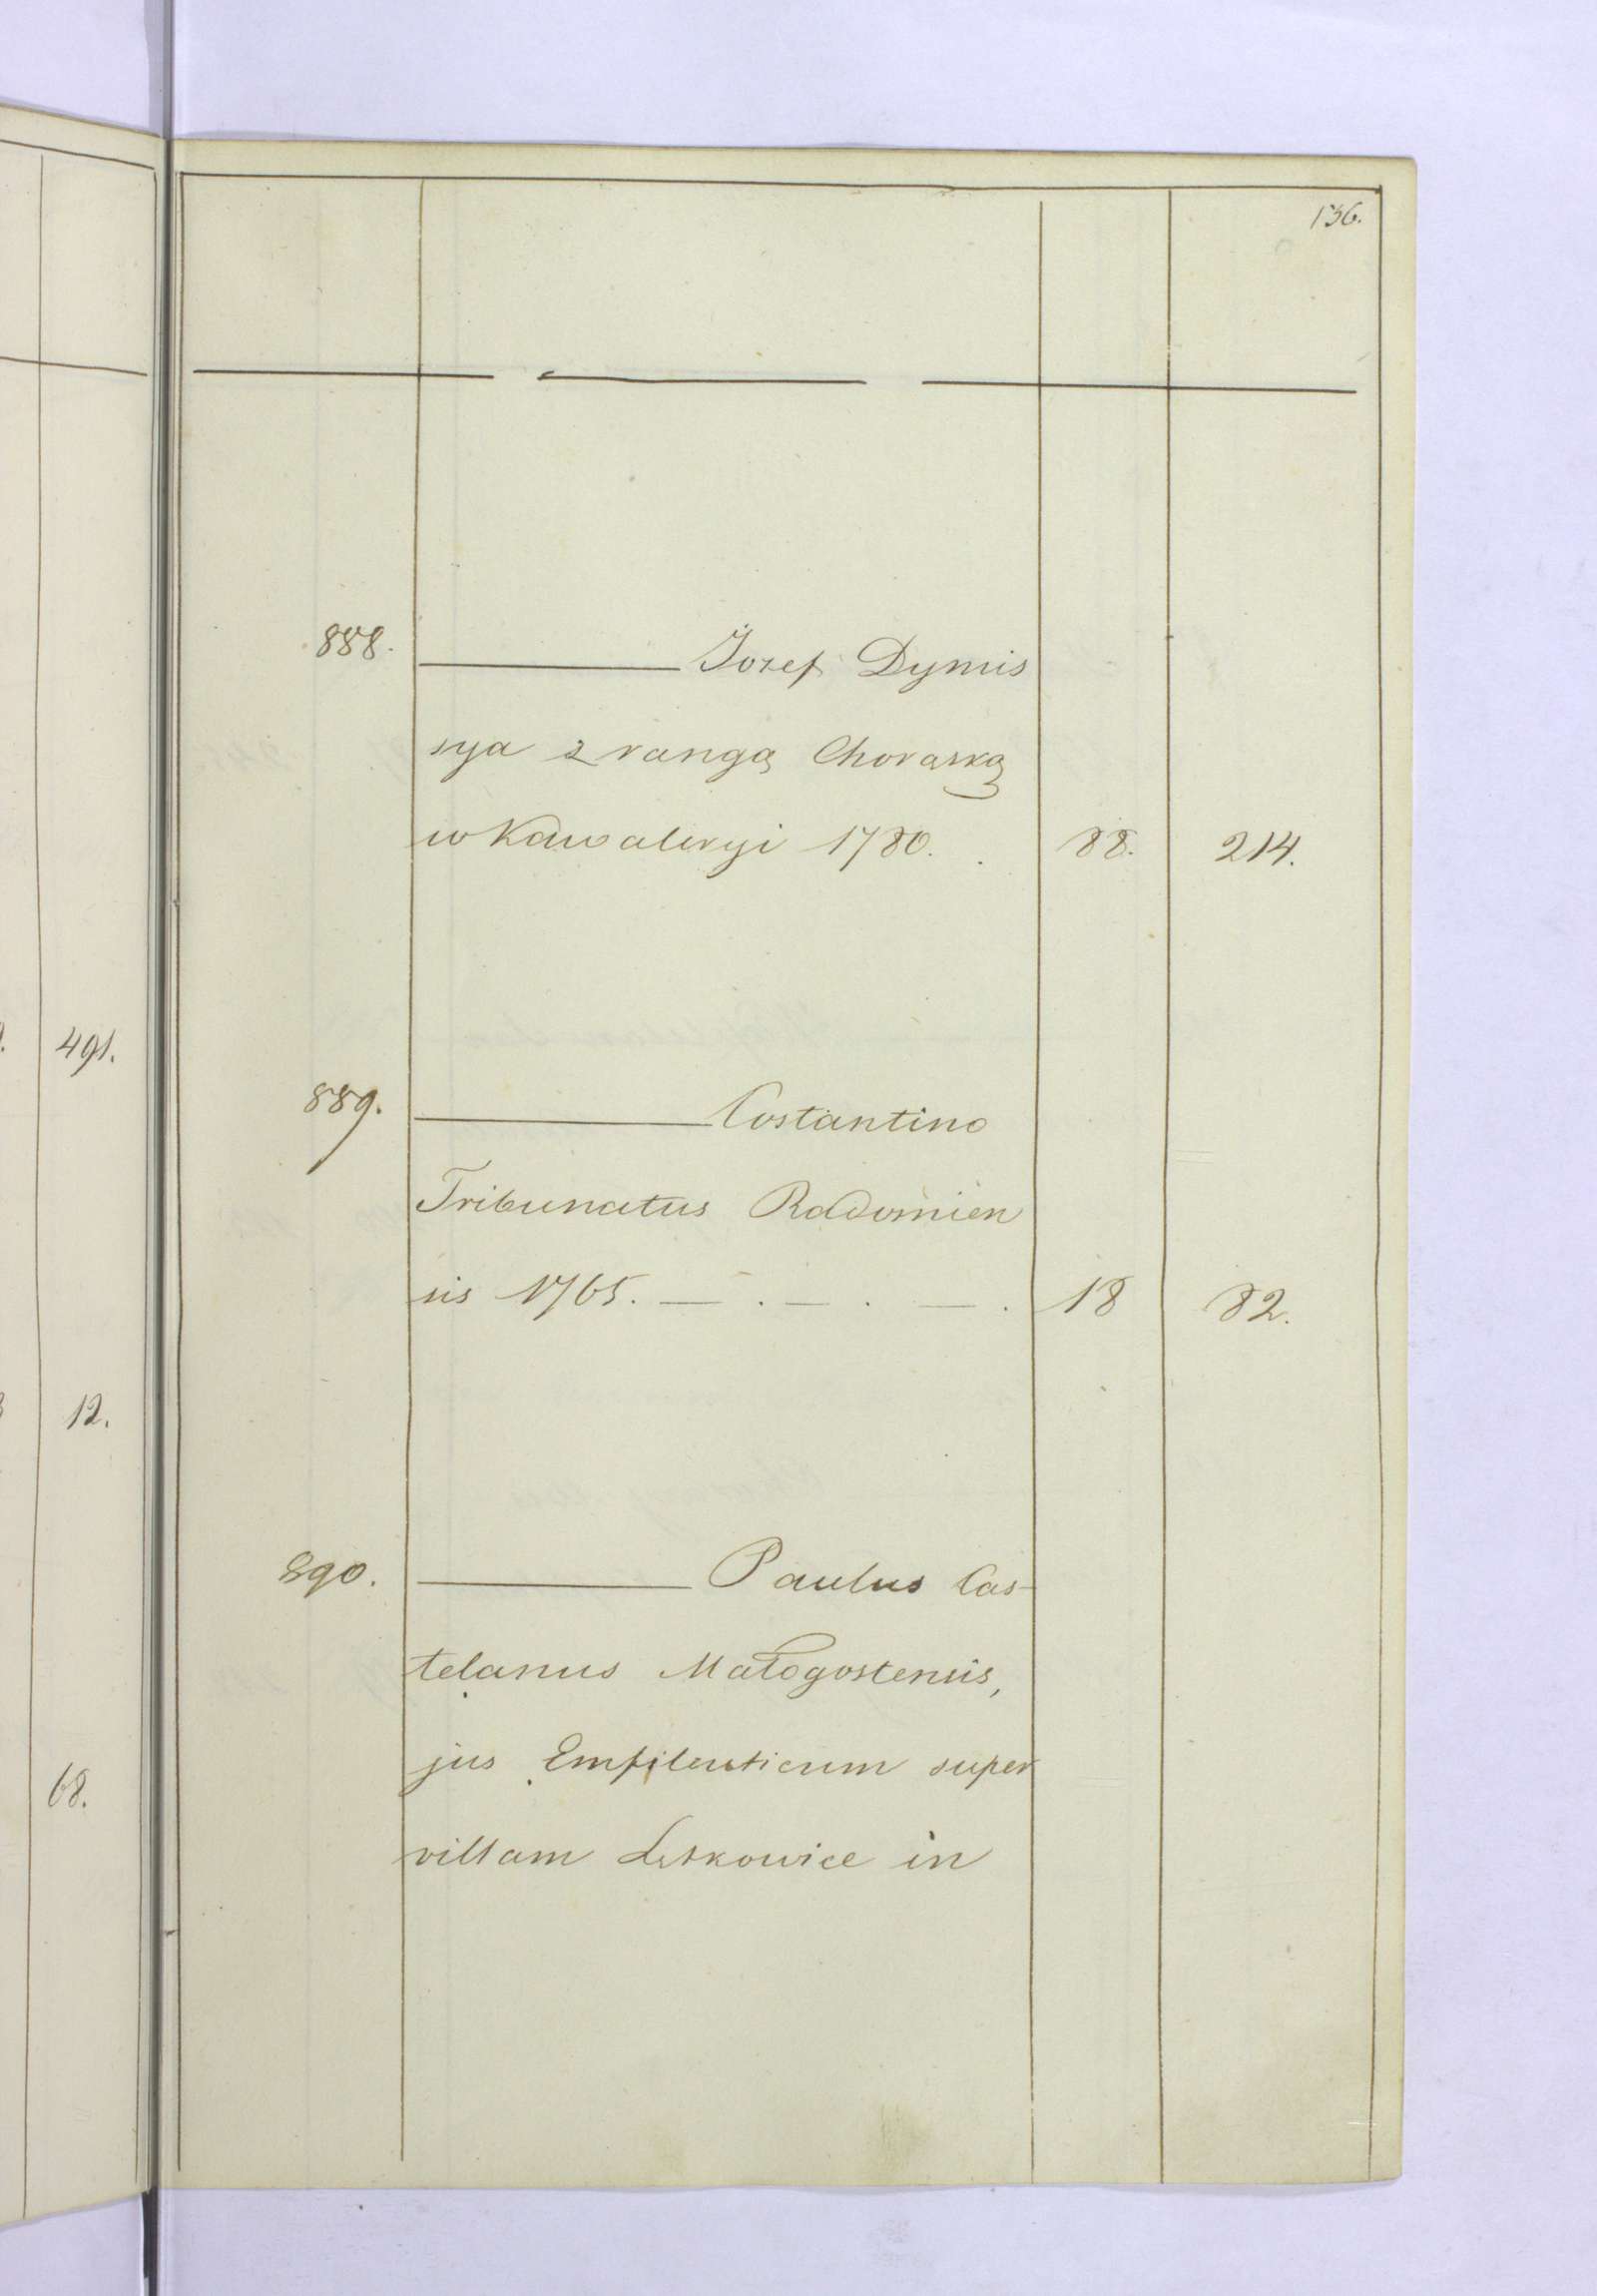 136.
888. Jozef Dymis
sya z rangą Chorąską
w Kawaleryi 1780. . 88. 214.
491.
889. Costantino
Tribunatus Radomien
sis 1765. — . — . — . 18 82.
12.
890. Paulus Cas-
telanus Małogostensis,
jus Emfiteuticum super
68.
villam Leskowice in